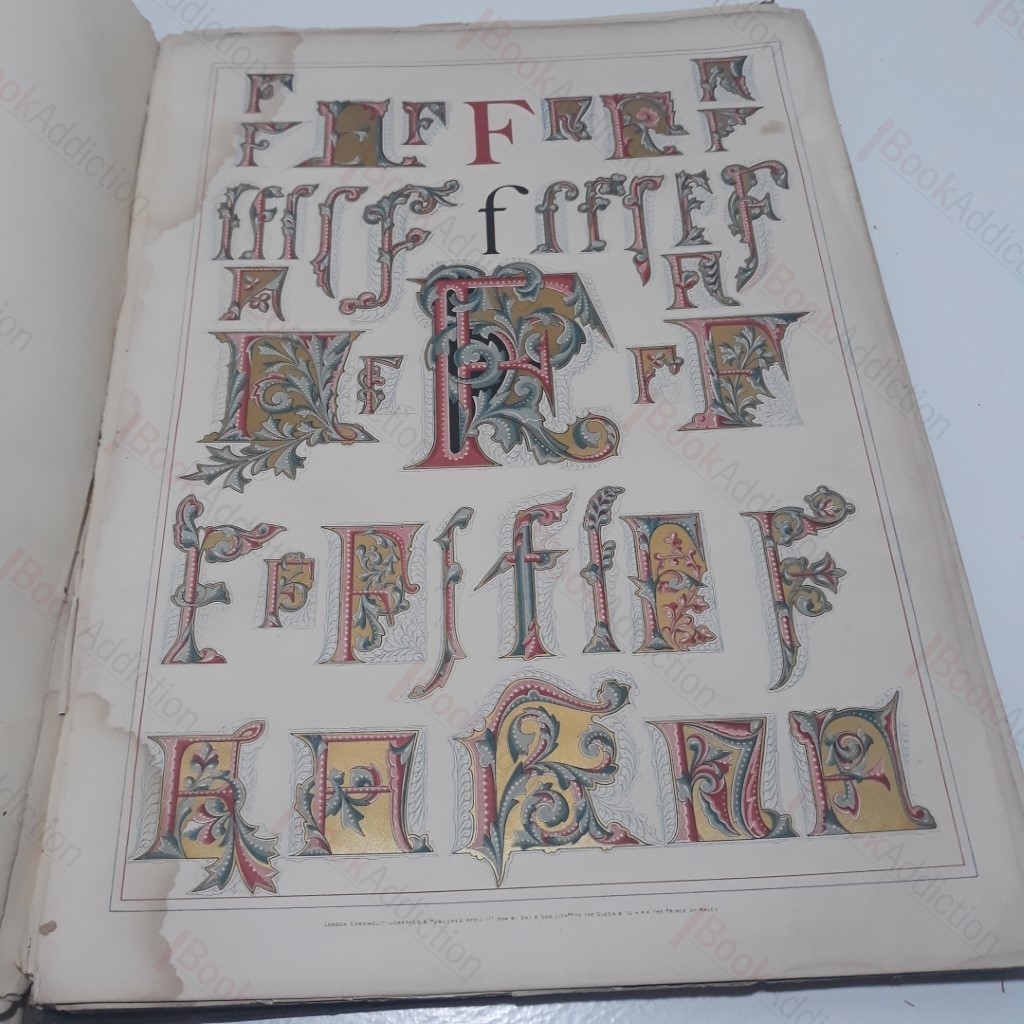 F
f
LONDON, CHROMOLITHOGRAPHED & PUBLISHED APRIL 1ST BY DAY & SON, LITHRS TO THE QUEEN & TO H.R.H. THE PRINCE OF WALES.
BookAddiction